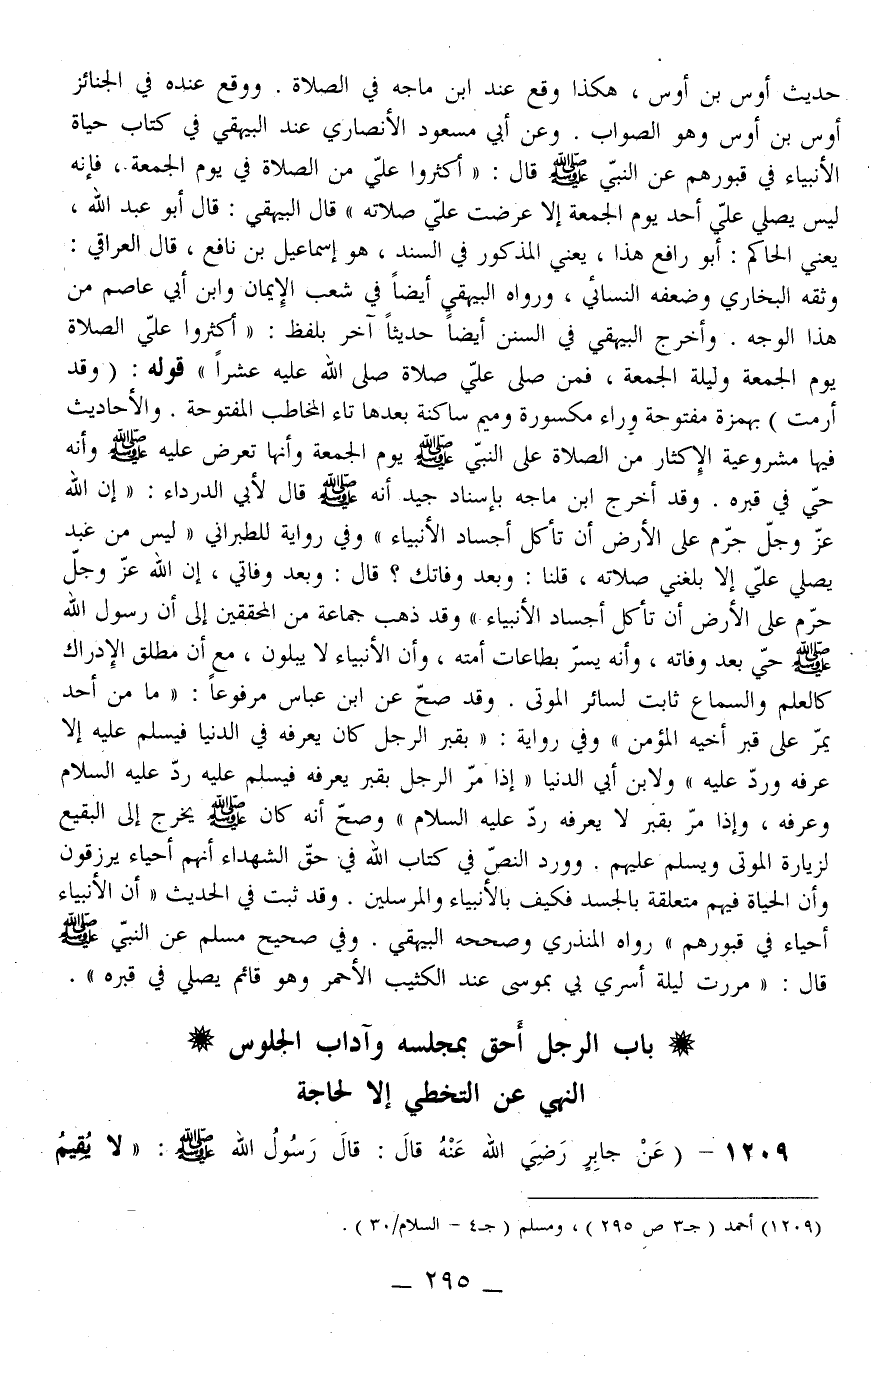 حديث أوس بن أوس ، هكذا وقع عند ابن ماجه في الصلاة . ووقع عنده في الجنائز
أوس بن أوس وهو الصواب . وعن أبي مسعود الأنصاري عند البيهقي في كتاب حياة
الأنبياء في قبورهم عن النبيّ ﷺ قال : « أكثروا عليّ من الصلاة في يوم الجمعة ، فإنه
ليس يصلي عليّ أحد يوم الجمعة إلا عرضت عليّ صلاته » قال البيهقي : قال أبو عبد الله ،
يعني الحاكم : أبو رافع هذا ، يعني المذكور في السند ، هو إسماعيل بن نافع ، قال العراقي :
وثقه البخاري وضعفه النسائي ، ورواه البيهقي أيضاً في شعب الإيمان وابن أبي عاصم من
هذا الوجه . وأخرج البيهقي في السنن أيضاً حديثاً آخر بلفظ : « أكثروا عليّ الصلاة
يوم الجمعة وليلة الجمعة ، فمن صلى عليّ صلاة صلى الله عليه عشراً » قوله : ( وقد
أرمت ) بهمزة مفتوحة وراء مكسورة وميم ساكنة بعدها تاء المخاطب المفتوحة . والأحاديث
فيها مشروعية الإكثار من الصلاة على النبيّ ﷺ يوم الجمعة وأنها تعرض عليه ﷺ وأنه
حيّ في قبره . وقد أخرج ابن ماجه بإسناد جيد أنه ﷺ قال لأبي الدرداء : « إن الله
عزّ وجلّ حرّم على الأرض أن تأكل أجساد الأنبياء » وفي رواية للطبراني « ليس من عبد
يصلي عليّ إلا بلغني صلاته ، قلنا : وبعد وفاتك ؟ قال : وبعد وفاتي ، إن الله عزّ وجلّ
حرّم على الأرض أن تأكل أجساد الأنبياء » وقد ذهب جماعة من المحققين إلى أن رسول الله
ﷺ حيّ بعد وفاته ، وأنه يسرّ بطاعات أمته ، وأن الأنبياء لا يبلون ، مع أن مطلق الإدراك
كالعلم والسماع ثابت لسائر الموتى . وقد صحّ عن ابن عباس مرفوعاً : « ما من أحد
يمرّ على قبر أخيه المؤمن » وفي رواية : « بقبر الرجل كان يعرفه في الدنيا فيسلم عليه إلا
عرفه وردّ عليه » ولابن أبي الدنيا « إذا مرّ الرجل بقبر يعرفه فيسلم عليه ردّ عليه السلام
وعرفه ، وإذا مرّ بقبر لا يعرفه ردّ عليه السلام » وصحّ أنه كان ﷺ يخرج إلى البقيع
لزيارة الموتى ويسلم عليهم . وورد النصّ في كتاب الله في حقّ الشهداء أنهم أحياء يرزقون
وأن الحياة فيهم متعلقة بالجسد فكيف بالأنبياء والمرسلين . وقد ثبت في الحديث « أن الأنبياء
أحياء في قبورهم » رواه المنذري وصححه البيهقي . وفي صحيح مسلم عن النبيّ ﷺ
قال : « مررت ليلة أسري بي بموسى عند الكثيب الأحمر وهو قائم يصلي في قبره » .
باب الرجل أحق بمجلسه وآداب الجلوس
النهي عن التخطي إلا لحاجة
١٢٠٩ - ( عَنْ جابِرٍ رَضِيَ الله عَنْهُ قالَ : قالَ رَسُولُ الله ﷺ : « لا يُقِيمُ
(١٢٠٩) أحمد ( جـ٣ ص ٢٩٥ ) ، ومسلم ( جـ٤ - السلام/٣٠ ) .
_ ٢٩٥ _